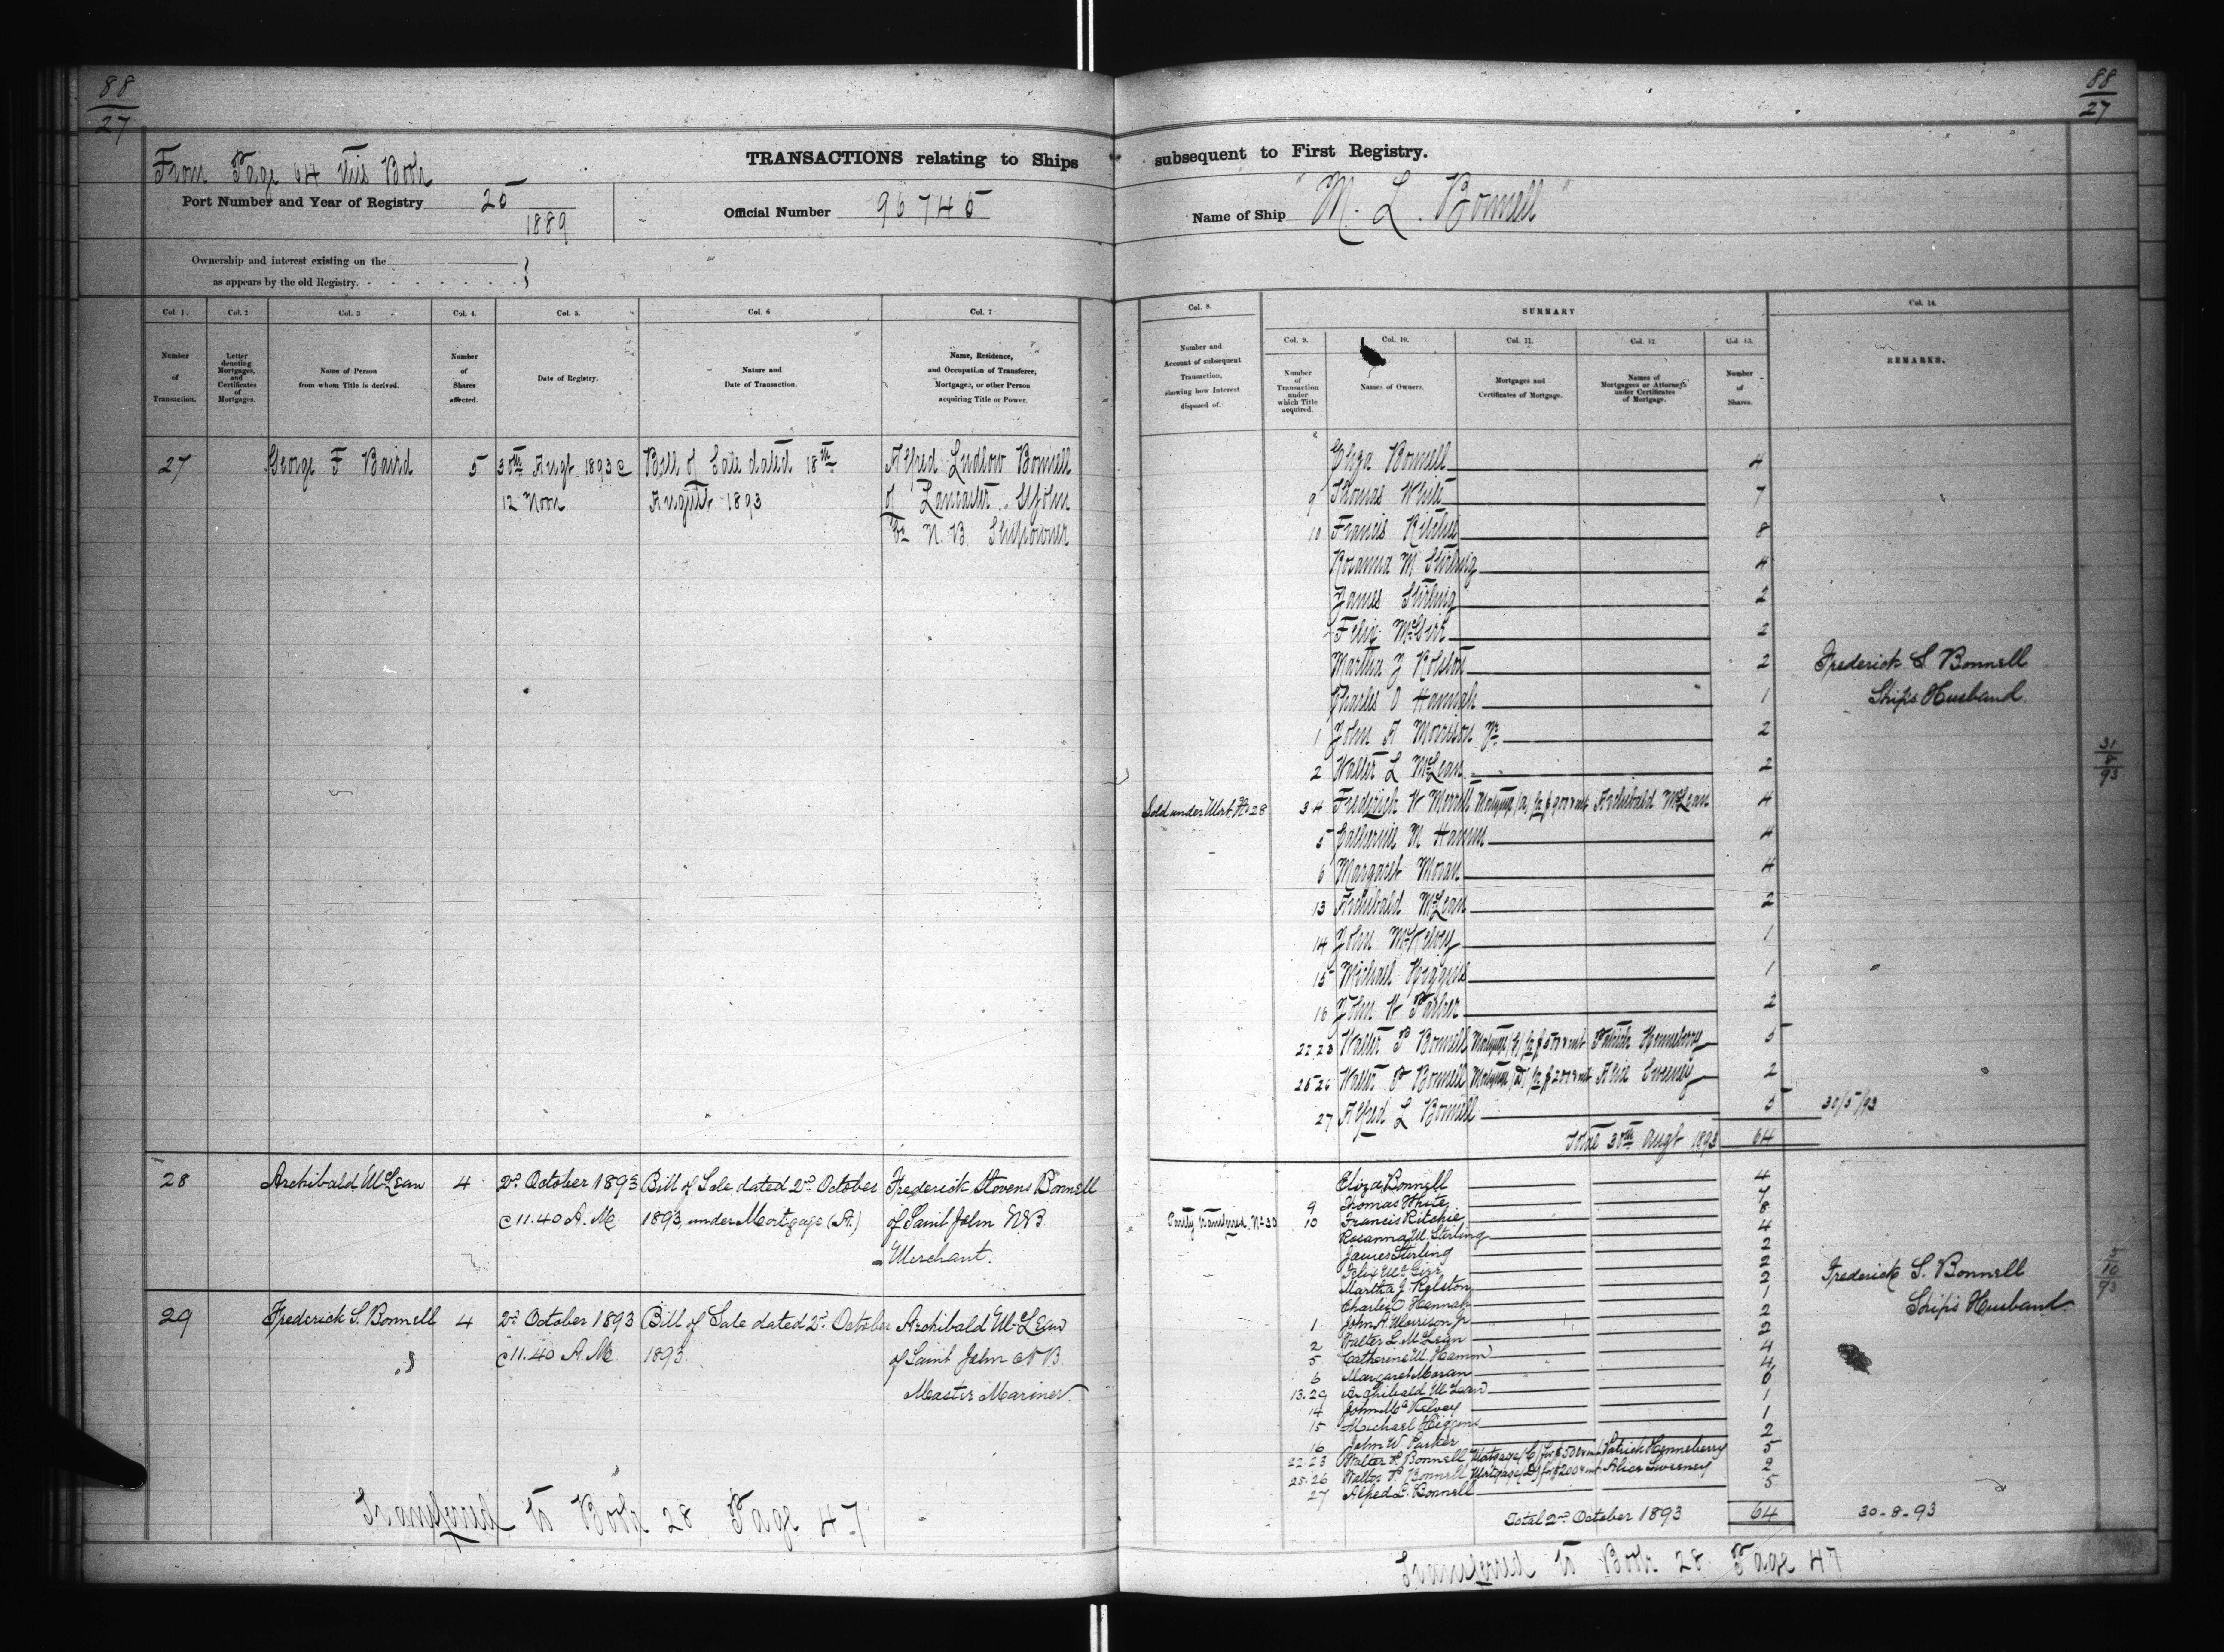 88
27
88
27
From Page 64 this Book
TRANSACTIONS relating to Ships subsequent to First Registry.
Port Number and Year of Registry 25
1889
Official Number 96745
Name of Ship "M. L. Bonnell"
Ownership and interest existing on the
as appears by the old Registry.
Col. 1. Col. 2 Col. 3 Col. 4. Col. 5. Col. 6 Col. 7
Number of Transaction.
Letter denoting Mortgages, and Certificates of Mortgages.
Name of Person from whom Title is derived.
Number of Shares affected.
Date of Registry.
Nature and Date of Transaction.
Name, Residence, and Occupation of Transferee, Mortgagee, or other Person acquiring Title or Power.
27 George F Baird 5 30th Augt 1893 @ Bill of Sale dated 18th Alfred Ludlow Bonnell
12 Noon August 1893 of Lancaster St John
Co N. B. Shipowner
28 Archibald McLean 4 2d October 1893 Bill of Sale dated 2d October Frederick Stevens Bonnell
@ 11.40 A.M. 1893, under Mortgage (A.) of Saint John N.B.
Merchant.
29 Frederick S. Bonnell 4 2d October 1893 Bill of Sale dated 2d October Archibald McLean
@ 11.40 A.M. 1893. of Saint John N B.
Master Mariner
Transferred to Book 28 Page 47
Col. 8. SUMMARY Col. 14.
Col. 9. Col. 10. Col. 11. Col. 12. Col. 13.
Number and Account of subsequent Transaction, showing how Interest disposed of.
Number of Transaction under which Title acquired.
Names of Owners.
Mortgages and Certificates of Mortgage.
Names of Mortgagees or Attorneys under Certificates of Mortgage.
Number of Shares.
REMARKS.
Eliza Bonnell 4
9 Thomas White 7
10 Francis Ritchie 8
Rosanna M Stirling 4
James Stirling 2
Felix McGirr 2
Martha J Rolston 2 Frederick S. Bonnell
Charles O Hannah 1 Ship's Husband.
1 John A Morrison Jr. 2
31
8
93
2 Walter L McLean 2
Sold under Mort. No 28 3 4 Frederick W Merritt Mortgage (A) for $900 & int Archibald McLean 4
5 Catherine M Hamm 4
6 Margaret Moran 4
13 Archibald McLean 2
14 John McKelvey 1
15 Michael Higgins 1
16 John W Parker 2
22 23 Walter P Bonnell Mortgage (C) for $500 & int Patrick Henneberry 5
25 26 Walter P Bonnell Mortgage (D) for $200 & int Alice Sweeney 2
27 Alfred L Bonnell 5 30/5/93
Total 30th Augt 1893 64
Eliza Bonnell 4
9 Thomas White 7
Partly transferred No 30 10 Francis Ritchie 8
Rosanna M. Stirling 4
James Stirling 2
Felix McGirr 2
Martha J. Rolston 2 Frederick S. Bonnell
Charles O Hannah 1 Ship's Husband
5
10
93
1. John A. Morrison Jr 2
2 Walter L. McLean 2
5 Catherine M. Hamm 4
6 Margaret Moran 4
13.29 Archibald McLean 6
14 John McKelvey 1
15 Michael Higgins 1
16 John W. Parker 2
22.23 Walter P. Bonnell Mortgage (C) for $500 & int Patrick Henneberry 5
25.26 Walter P. Bonnell Mortgage (D) for $200 & int Alice Sweeney 2
27 Alfred L. Bonnell 5
Total 2d October 1893 64 30-8-93
Transferred to Book 28. Page 47